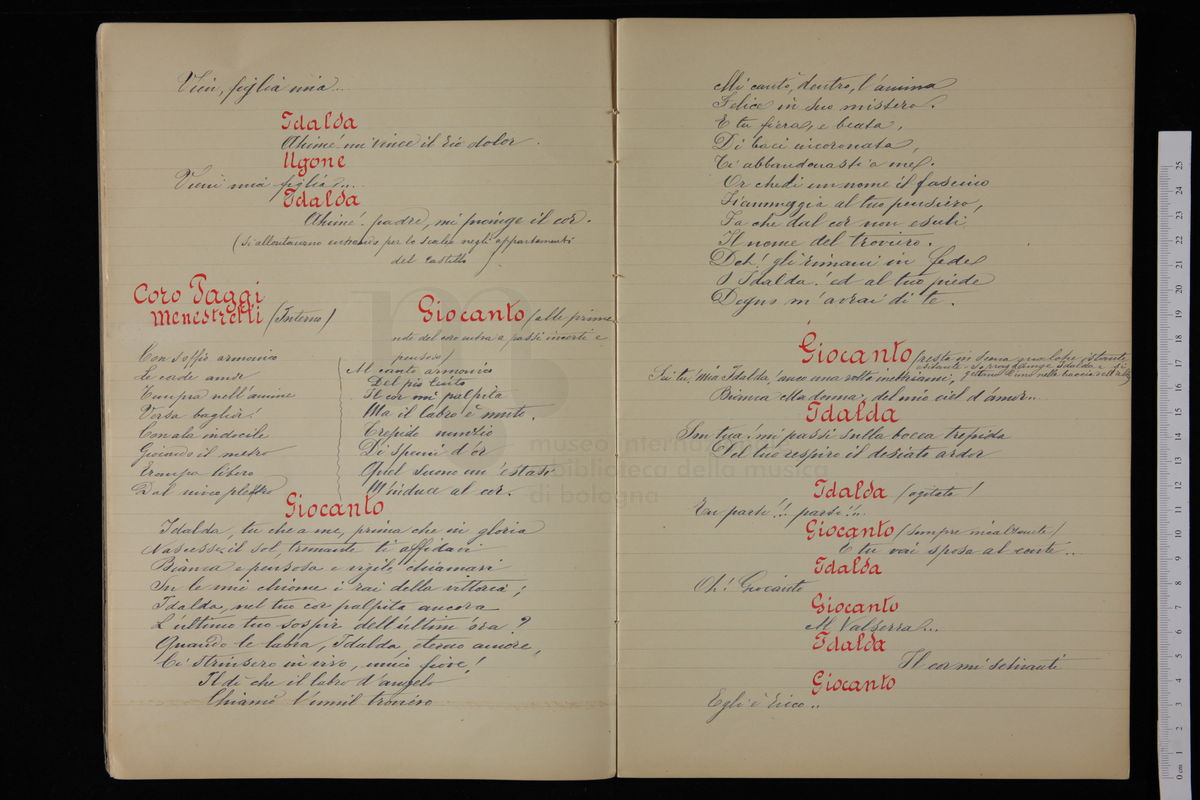 Vieni, figlia mia...
Idalda
Ahimè! mi vince il rio dolor.
Ugone
Vieni mia figlia....
Idalda
Ahimè! padre, mi piange il cor.
(Si allontanano entrambi per la scalea negli appartamenti
del Castello
Coro Paggi
Menestrelli (Interno)
Con soffio armonico
Le cade
nell'anime
Versa
Con ala indocile
il metro
Erompa libero
Dal plettro
Giocanto (alle prime
note del coro entra a passi incerti e
pensoso)
Al canto armonico
Del pio liuto
Il cor mi palpita
Ma il labro è muto.
Trepido nunzio
Di spemi d'ôr
Quel suono un'estasi
M'induce al cor.
Giocanto
Idalda, tu che a me, prima che in gloria
Nascesse il sol, tremante ti affidavi
Bianca e pensosa e vigile chiamavi
Su le mie chiome i rai della vittoria;
Idalda, nel tuo cor palpita ancora
L'ultimo tuo sospir dell'ultim'ora?
Quando le labra, Idalda, eterno amore,
Ci strinsero in un, mio fiore!
Il dì che il labro d'angelo
Chiamò l'umil troviero
Mi cantò, dentro, l'anima
Felice in suo mistero.
E tu fiera, e beata,
Di baci incoronata,
Ti abbandonasti a me.
Or chedi un nome il fascino
Fiammeggia al tuo pensiero,
Fa che dal cor non esuli
Il nome del troviero.
Deh! gli rimani in fede
O Idalda! ed al tuo piede
Degno m'avrai di te.
Giocanto (resta in scena qualche istante
esitante
Sei tu, mia Idalda! anco una volta inebriami,
Bianca Madonna, del mio ciel d'amor...
Idalda
Son tua! mi passi sulla bocca trepida
Del tuo respiro il desiato ardor
Idalda (agitata)
Tu parti!.. parti!..
Giocanto (sempre incalzante)
E tu vai sposa al conte..
Idalda
Oh! Giocanto
Giocanto
Al Valserra...
Idalda
Il cor mi schianti
Giocanto
Egli è ricco..
museo internazionale
e biblioteca della musica
di bologna
0 cm 1 2 3 4 5 6 7 8 9 10 11 12 13 14 15 16 17 18 19 20 21 22 23 24 25